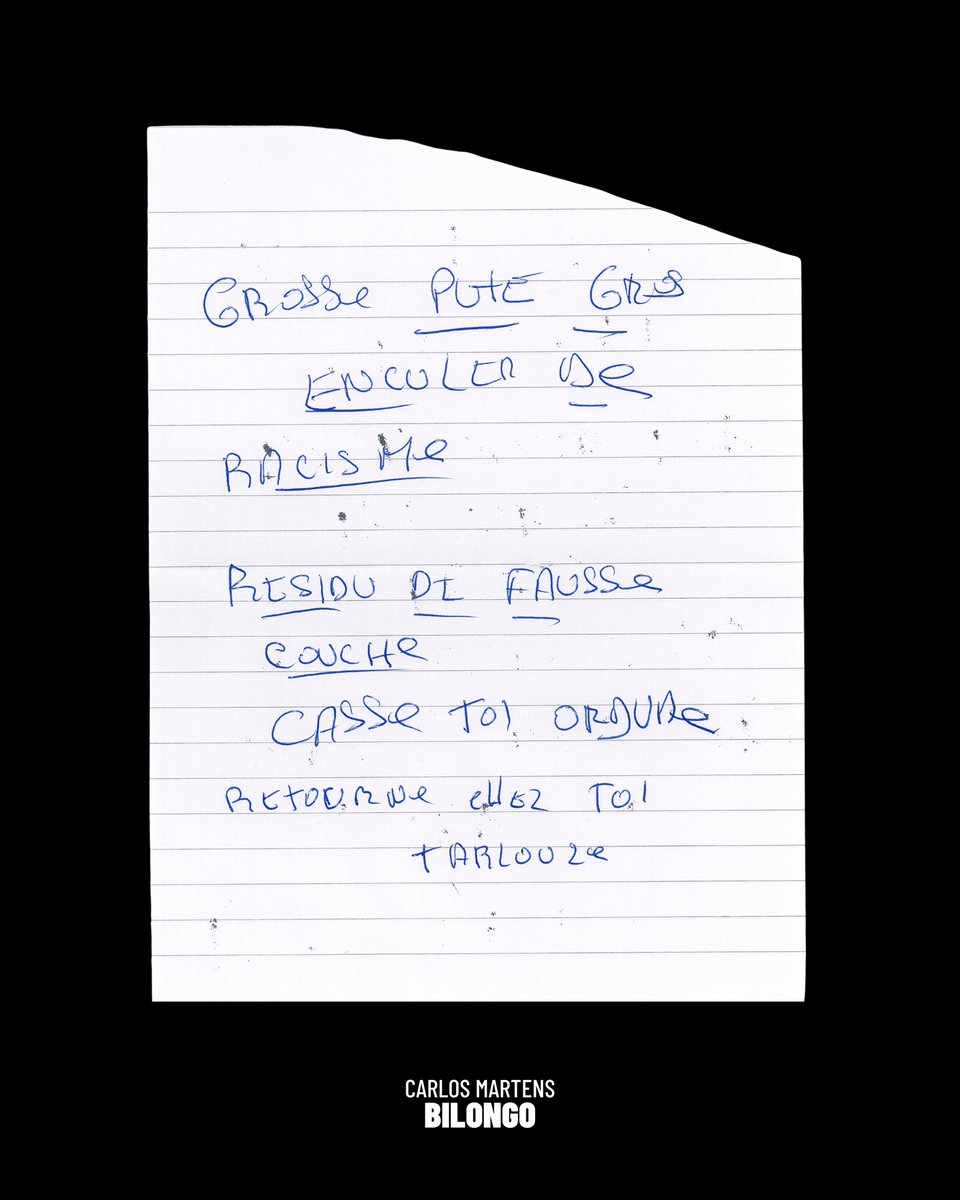 GROSSe PUtE GRoS
ENCULER De
RACISMe
RESIDU DE FAUSSe
COUCHe
CASSe TOI ORDURe
REtOURNe cHEZ TOI
tARLOUZe
CARLOS MARTENS
BILONGO